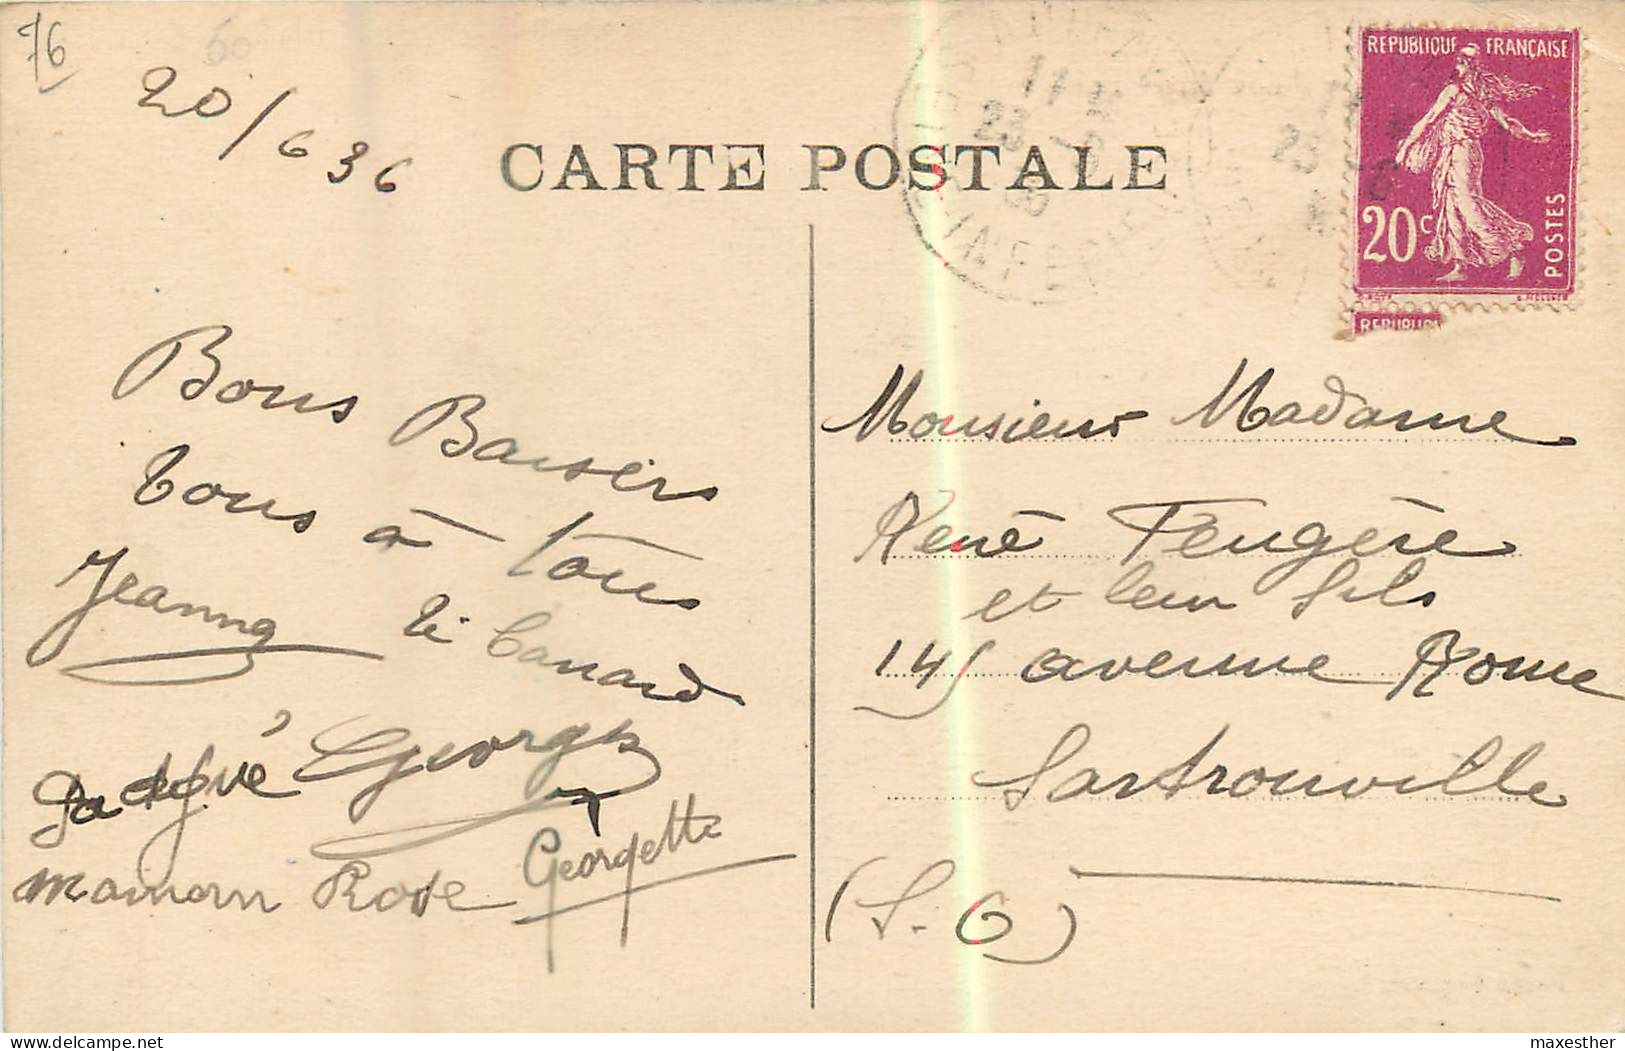 76
60
20/6 36
CARTE POSTALE
REPUBLIQUE FRANÇAISE
20c
POSTES
REPUBLIQ
Bons Baisers
tous à tous
Jeanne le Canard
Georges
Georgette
maman Rose
Monsieur Madame
René Feugère
et leur fils
145 avenue Rome
Sartrouville
(S. O)
Delcampe.net
maxesther